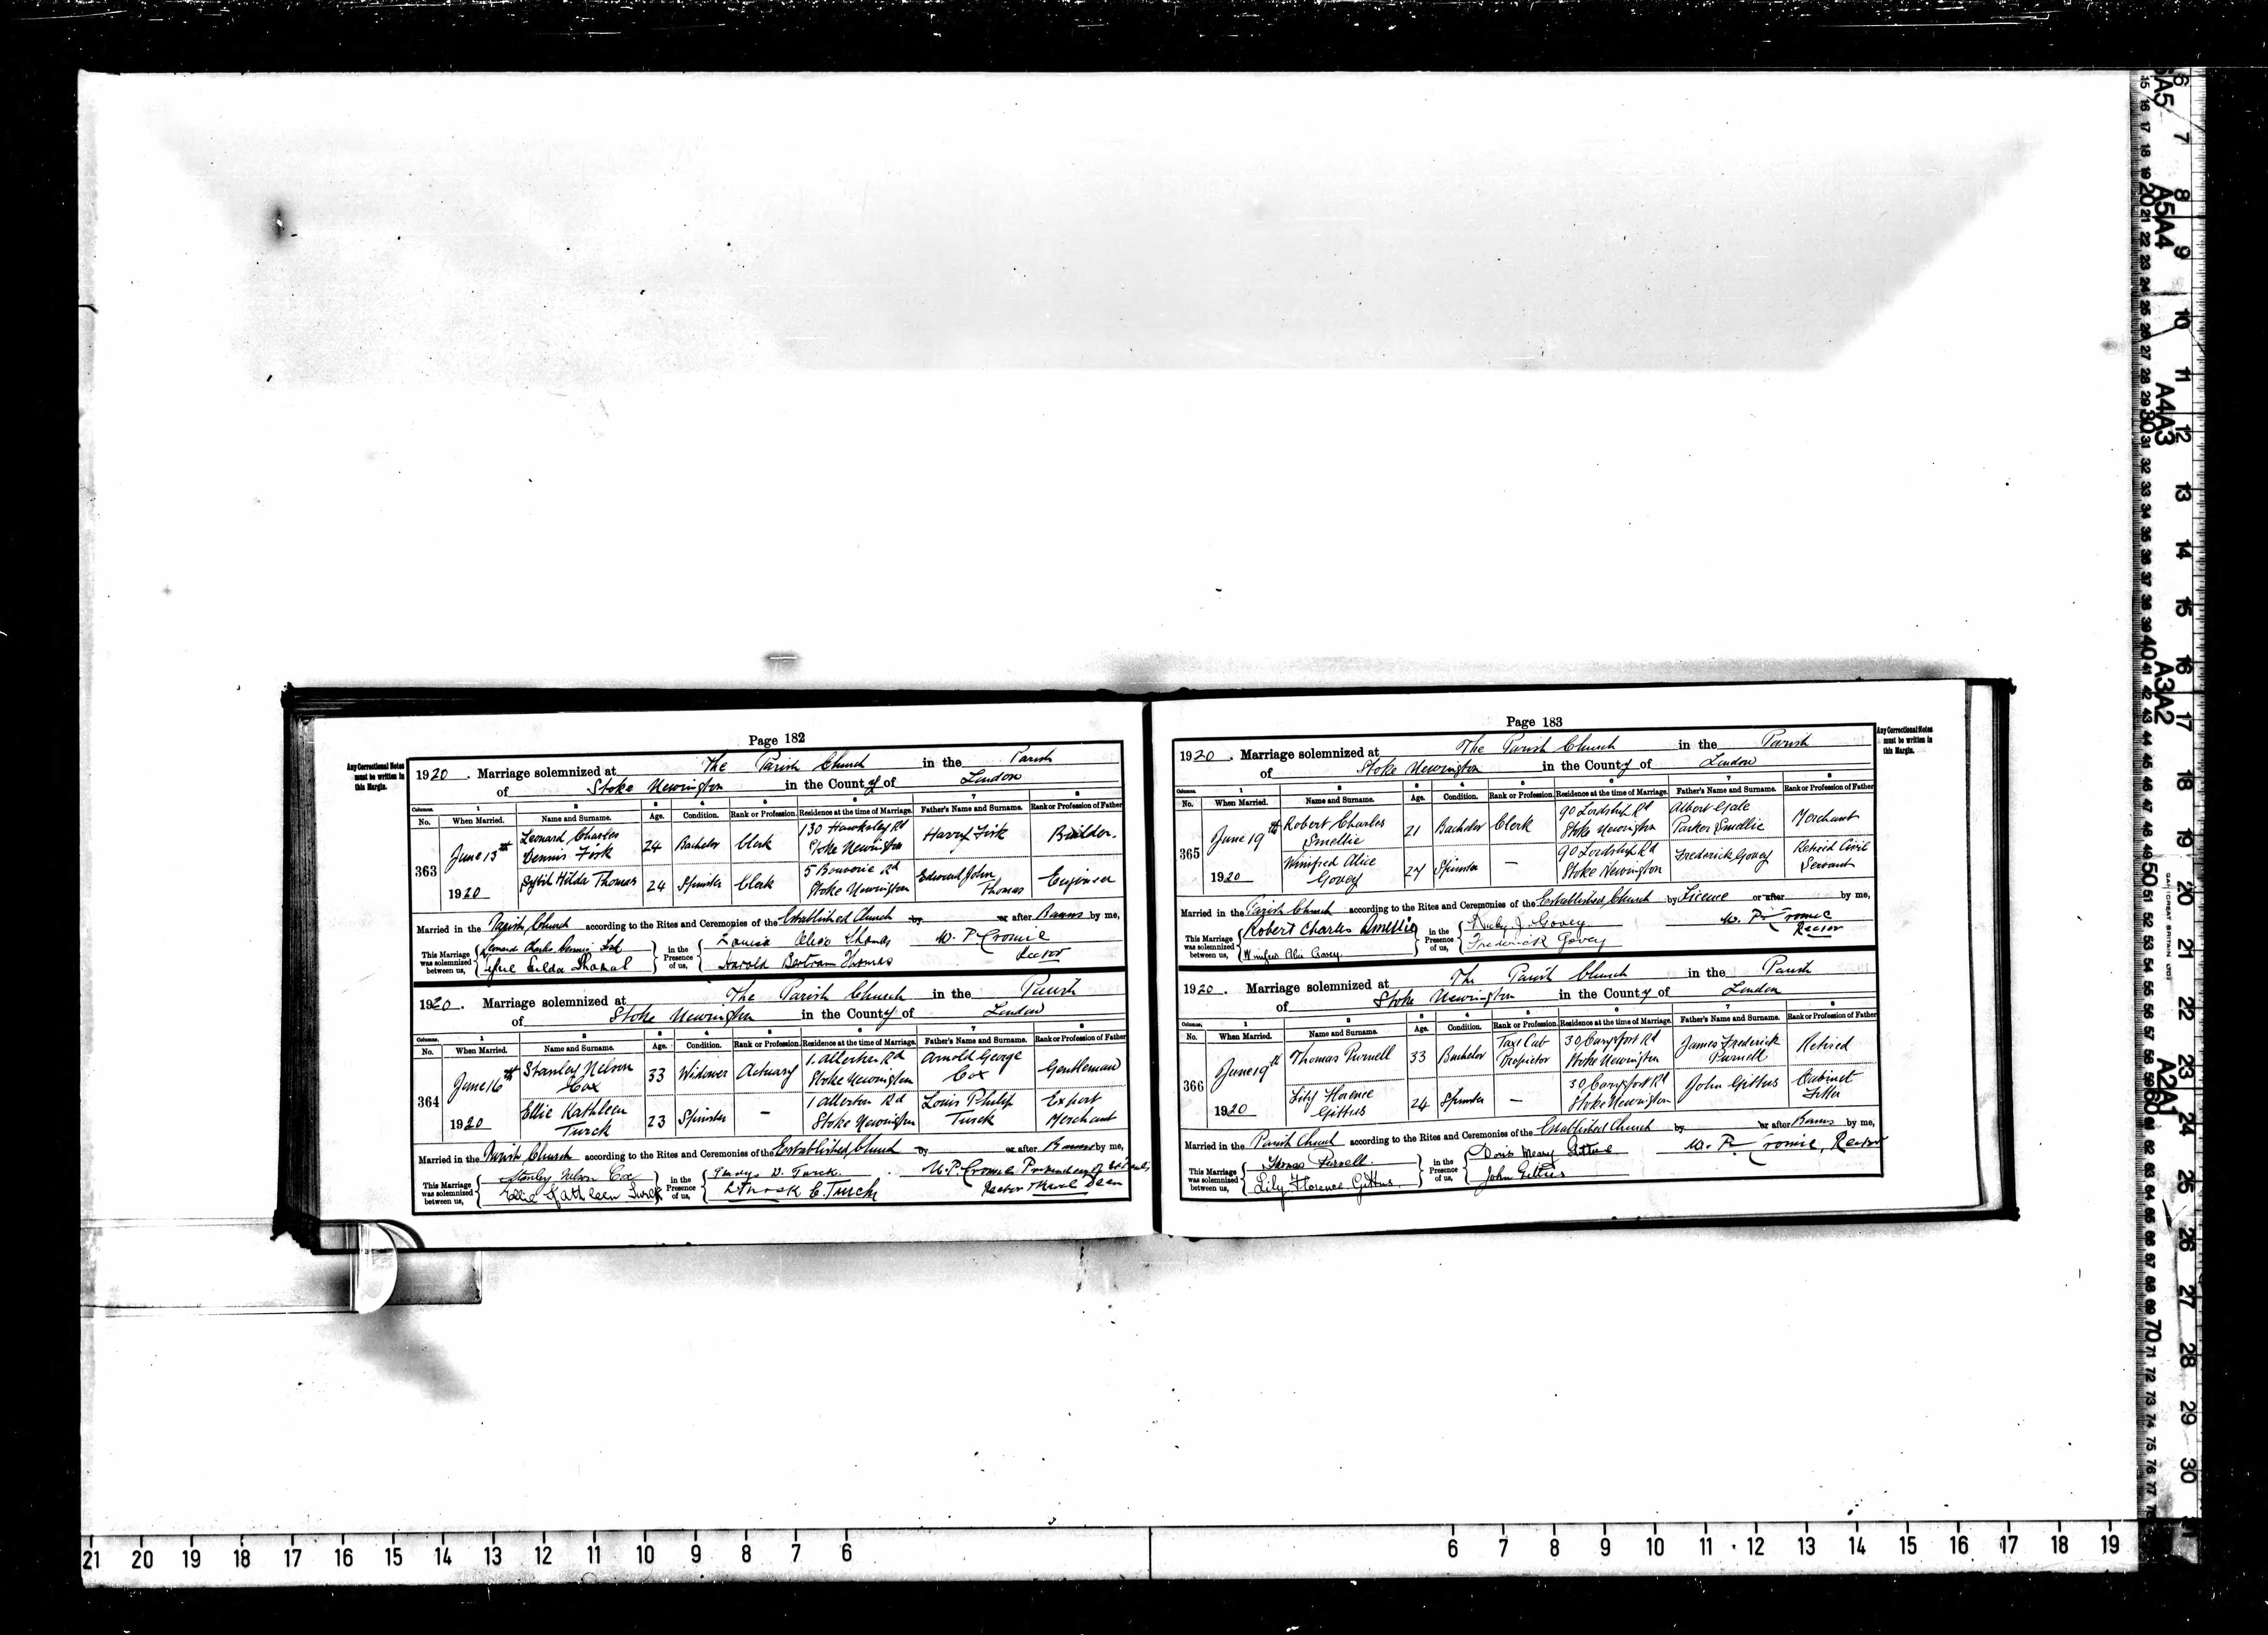 Page 182
Any Correctional Notes
must be written in
this Margin.
1920. Marriage solemnized at The Parish Church in the Parish
of Stoke Newington in the County of London
Columns. 1 2 3 4 5 6 7 8
No. When Married. Name and Surname. Age. Condition. Rank or Profession. Residence at the time of Marriage. Father's Name and Surname. Rank or Profession of Father
363 June 13th 1920 Leonard Charles Dennis Fisk 24 Bachelor Clerk 130 Hawksley Rd Stoke Newington Harry Fisk Builder.
Sybil Hilda Thomas 24 Spinster Clerk 5 Bouverie Rd Stoke Newington Edward John Thomas Engineer
Married in the Parish Church according to the Rites and Ceremonies of the Established Church by or after Banns by me,
This Marriage was solemnized between us, Leonard Charles Dennis Fisk in the Presence of us, Louisa Thomas W. P. Cromie
Hilda Thomas Harold Bertram Thomas Rector
1920. Marriage solemnized at The Parish Church in the Parish
of Stoke Newington in the County of London
Columns. 1 2 3 4 5 6 7 8
No. When Married. Name and Surname. Age. Condition. Rank or Profession. Residence at the time of Marriage. Father's Name and Surname. Rank or Profession of Father
364 June 16th 1920 Stanley Nelson Cox 33 Widower Actuary 1, Allerton Rd Stoke Newington Arnold George Cox Gentleman
Ellie Kathleen Turck 23 Spinster — 1 Allerton Rd Stoke Newington Louis Philip Turck Export Merchant
Married in the Parish Church according to the Rites and Ceremonies of the Established Church by or after Banns by me,
This Marriage was solemnized between us, Stanley Nelson Cox in the Presence of us, Gladys D. Turck. W. P. Cromie Prebendary of St Pauls
Ellie Kathleen Turck C. Turck Rector & Rural Dean
Page 183
Any Correctional Notes
must be written in
this Margin.
1920. Marriage solemnized at The Parish Church in the Parish
of Stoke Newington in the County of London
Columns. 1 2 3 4 5 6 7 8
No. When Married. Name and Surname. Age. Condition. Rank or Profession. Residence at the time of Marriage. Father's Name and Surname. Rank or Profession of Father
365 June 19th 1920 Robert Charles Smellie 21 Bachelor Clerk 90 Lordship Rd Stoke Newington Albert Gale Parker Smellie Merchant
Winifred Alice Govey 27 Spinster — 90 Lordship Rd Stoke Newington Frederick Govey Retired Civil Servant
Married in the Parish Church according to the Rites and Ceremonies of the Established Church by Licence or after by me,
This Marriage was solemnized between us, Robert Charles Smellie in the Presence of us, Ruby J. Govey W. P. Cromie
Winifred Alice Govey. Frederick Govey Rector
1920. Marriage solemnized at The Parish Church in the Parish
of Stoke Newington in the County of London
Columns. 1 2 3 4 5 6 7 8
No. When Married. Name and Surname. Age. Condition. Rank or Profession. Residence at the time of Marriage. Father's Name and Surname. Rank or Profession of Father
366 June 19th 1920 Thomas Purnell 33 Bachelor Taxi Cab Proprietor 30 Carysfort Rd Stoke Newington James Frederick Purnell Retired
Lily Florence Gittus 24 Spinster — 30 Carysfort Rd Stoke Newington John Gittus Cabinet Fitter
Married in the Parish Church according to the Rites and Ceremonies of the Established Church by or after Banns by me,
This Marriage was solemnized between us, Thomas Purnell. in the Presence of us, Doris Meary Gittus W. P. Cromie, Rector
Lily Florence Gittus. John Gittus
A5 A5 A4 A4 A3 A3 A2 A2 A1
6 7 8 9 10 11 12 13 14 15 16 17 18 19 20 21 22 23 24 25 26 27 28 29 30
21 20 19 18 17 16 15 14 13 12 11 10 9 8 7 6 6 7 8 9 10 11 12 13 14 15 16 17 18 19